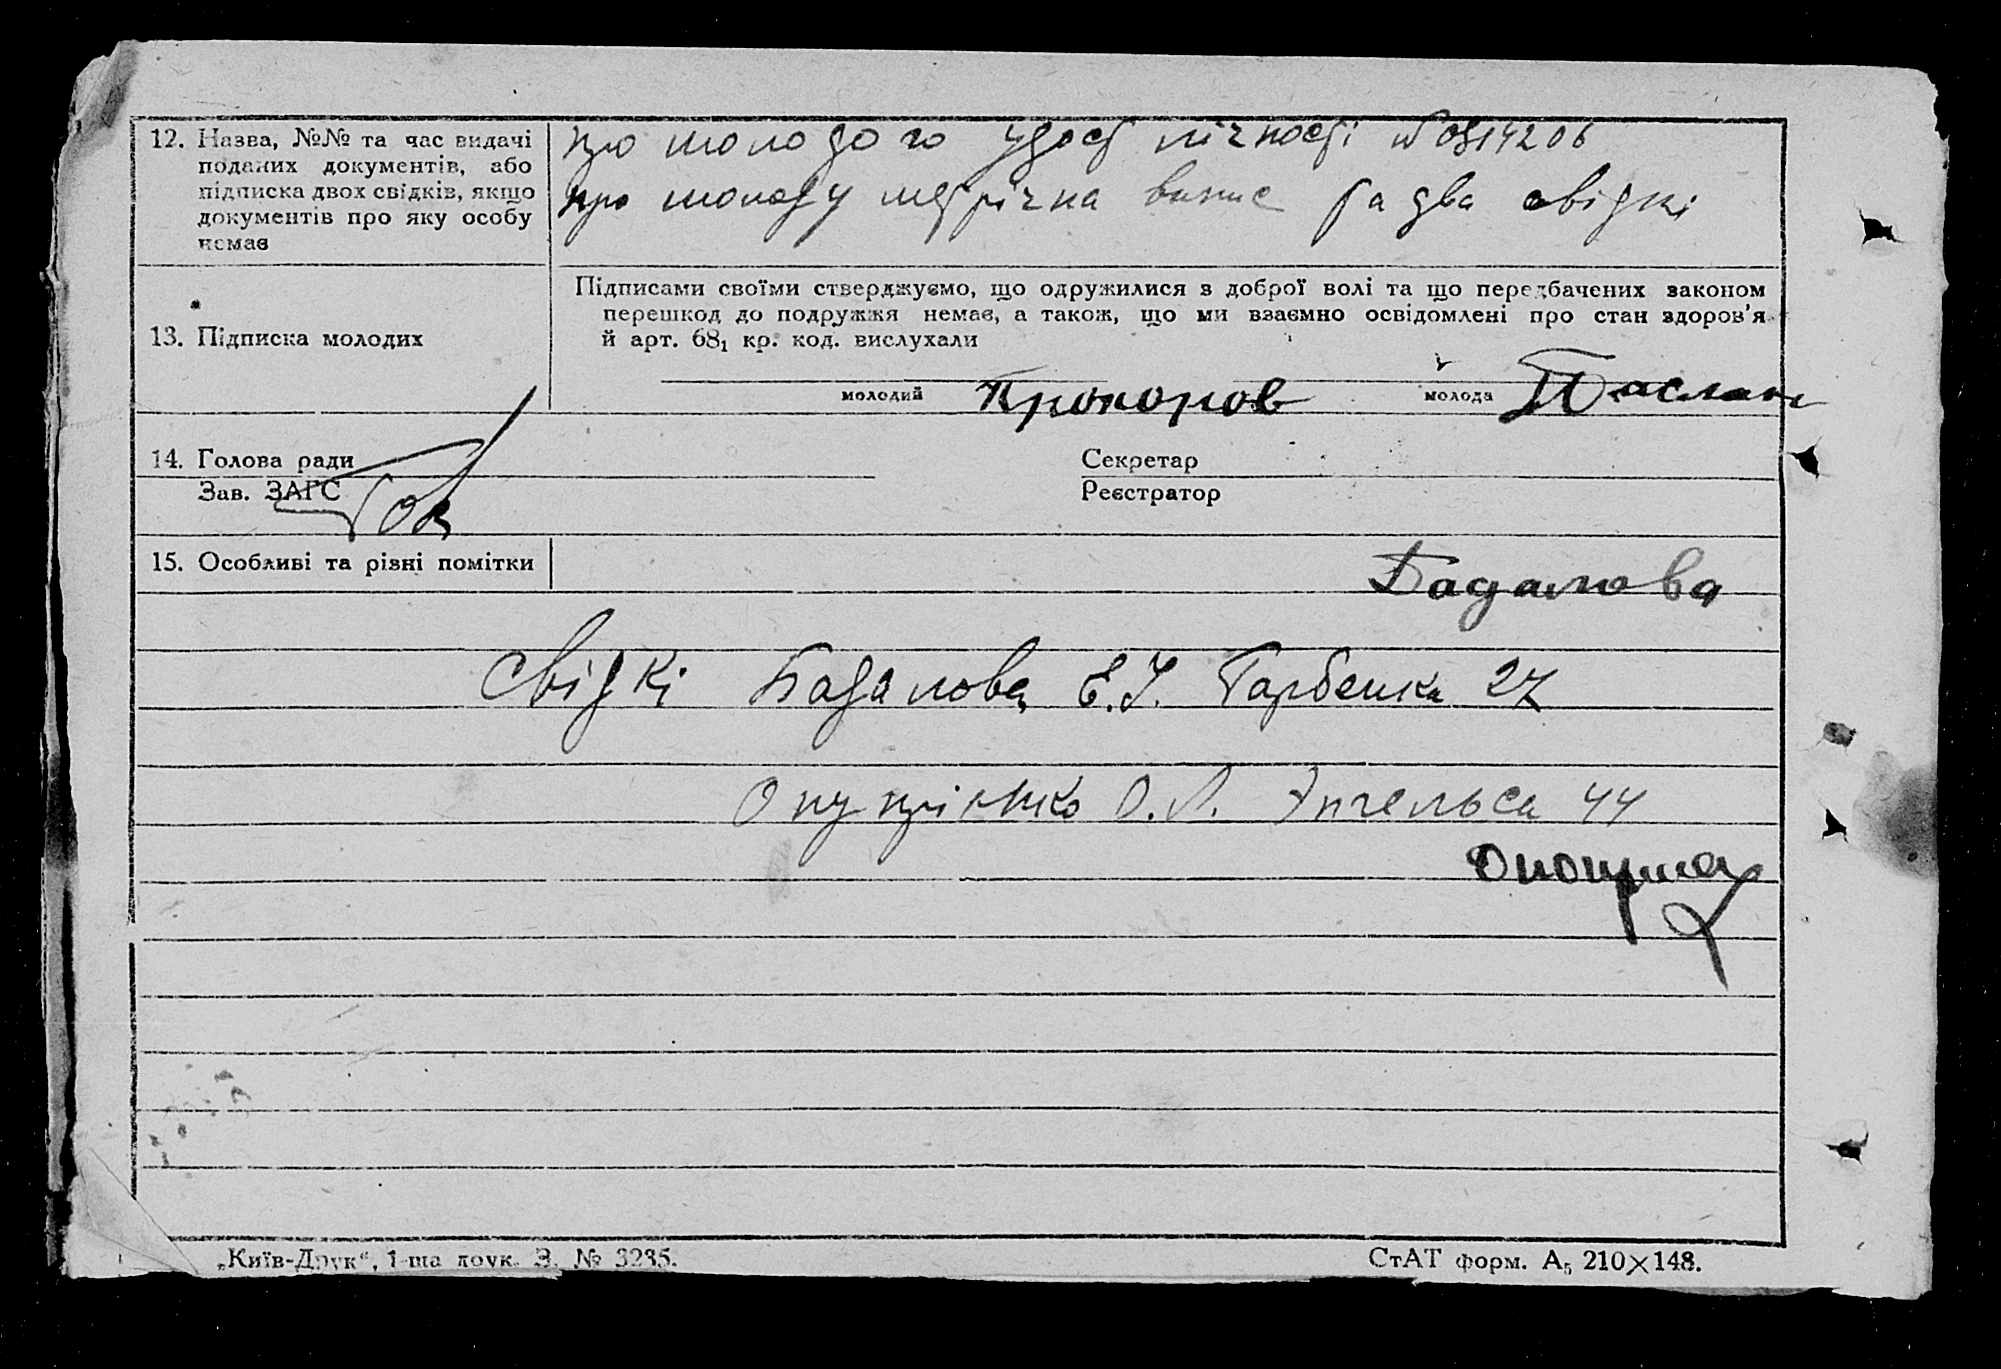 12. Назва, №№ та час видачі
поданих документів, або
підписка двох свідків, якщо
документів про яку особу
немає
про молодого удост лічності № 0514206
про молоду метрічна випис та два свідкі
13. Підписка молодих
Підписами своїми стверджуємо, що одружилися з доброї волі та що передбачених законом
перешкод до подружжя немає, а також, що ми взаємно освідомлені про стан здоров'я
й арт. 68₁ кр. код. вислухали
молодий Прохоров молода
14. Голова ради Секретар
Зав. ЗАГС Реєстратор
15. Особливі та різні помітки
Бадалова
Свідкі Бадалова Е.І. 27
О.Л. Энгельса 44
„Київ-Друк“, 1-ша друк. З. № 3235.
СтАТ форм. А₅ 210×148.